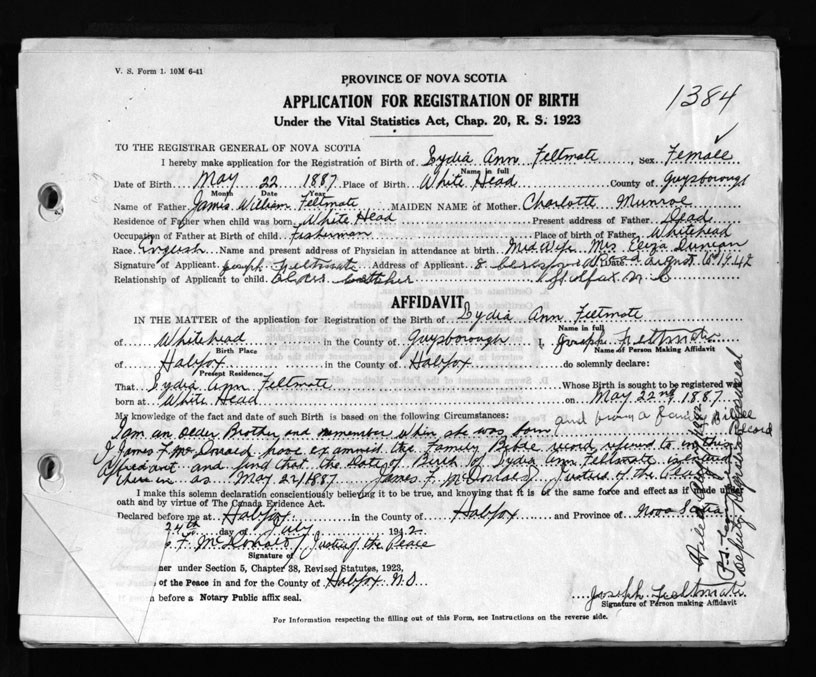 V. S. Form 1. 10M 6-41
PROVINCE OF NOVA SCOTIA
1384
APPLICATION FOR REGISTRATION OF BIRTH
Under the Vital Statistics Act, Chap. 20, R. S. 1923
TO THE REGISTRAR GENERAL OF NOVA SCOTIA
I hereby make application for the Registration of Birth of Lydia Ann Feltmate, Sex Female
Name in full
Date of Birth May 22 1887 Place of Birth White Head County of Guysborough
Month Date Year
Name of Father James William Feltmate MAIDEN NAME of Mother Charlotte Munroe
Residence of Father when child was born White Head Present address of Father Dead
Occupation of Father at Birth of child Fisherman Place of birth of Father Whitehead
Race English Name and present address of Physician in attendance at birth Mid Wife Mrs. Eliza Duncan
Signature of Applicant Joseph Feltmate Address of Applicant 8 Date August 6 1942
Relationship of Applicant to child Halifax N.S.
AFFIDAVIT
IN THE MATTER of the application for Registration of the Birth of Lydia Ann Feltmate
Name in full
of Whitehead in the County of Guysborough I, Joseph Feltmate
Birth Place Name of Person Making Affidavit
of Halifax in the County of Halifax do solemnly declare:
Present Residence
That Lydia Ann Feltmate Whose Birth is sought to be registered was
born at White Head on May 22nd 1887
My knowledge of the fact and date of such Birth is based on the following Circumstances:
I am an older Brother and remember when she was born and from a family Bible Record
I James F. McDonald have examined the Family Bible record referred to in this
Affidavit and find that the Date of Birth of Lydia Ann Feltmate is
there in as May 22/1887 James F. McDonald Justice of the Peace
I make this solemn declaration conscientiously believing it to be true, and knowing that it is of the same force and effect as if made upon
oath and by virtue of The Canada Evidence Act.
Declared before me at Halifax in the County of Halifax and Province of Nova Scotia
24th day of July 1942
F. McDonald Justice of the Peace
Signature of
her under Section 5, Chapter 38, Revised Statutes, 1923,
of the Peace in and for the County of Halifax N.S.
n before a Notary Public affix seal.
Joseph Feltmate
Signature of Person making Affidavit
For Information respecting the filling out of this Form, see Instructions on the reverse side.
Filed
Deputy Registrar General